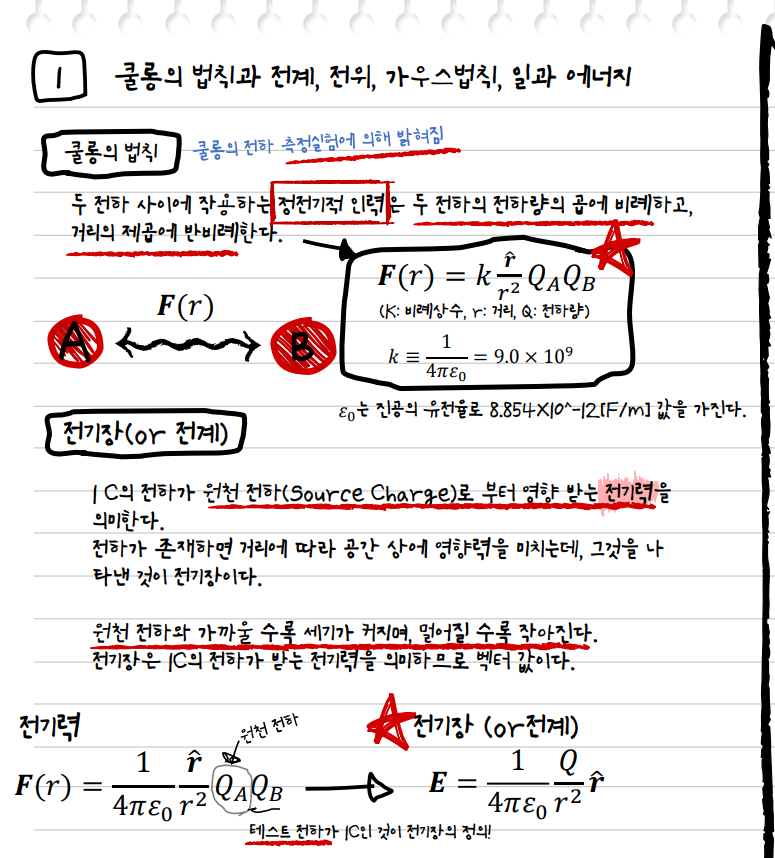 1
쿨롱의 법칙과 전계, 전위, 가우스법칙, 일과 에너지
쿨롱의 법칙
쿨롱의 전하 측정실험에 의해 밝혀짐
두 전하 사이에 작용하는 정전기적 인력은 두 전하의 전하량의 곱에 비례하고,
거리의 제곱에 반비례한다.
F(r) = k r̂/r² Q_A Q_B
(K: 비례상수, r: 거리, Q: 전하량)
k ≡ 1/4πε₀ = 9.0 × 10⁹
F(r)
A
B
ε₀는 진공의 유전율로 8.854X10^-12[F/m] 값을 가진다.
전기장(or 전계)
1C의 전하가 원천 전하(Source Charge)로 부터 영향 받는 전기력을
의미한다.
전하가 존재하면 거리에 따라 공간 상에 영향력을 미치는데, 그것을 나
타낸 것이 전기장이다.
원천 전하와 가까울 수록 세기가 커지며, 멀어질 수록 작아진다.
전기장은 1C의 전하가 받는 전기력을 의미하므로 벡터 값이다.
전기력
원천 전하
F(r) = 1/4πε₀ r̂/r² Q_A Q_B
테스트 전하가 1C인 것이 전기장의 정의!
전기장 (or전계)
E = 1/4πε₀ Q/r² r̂